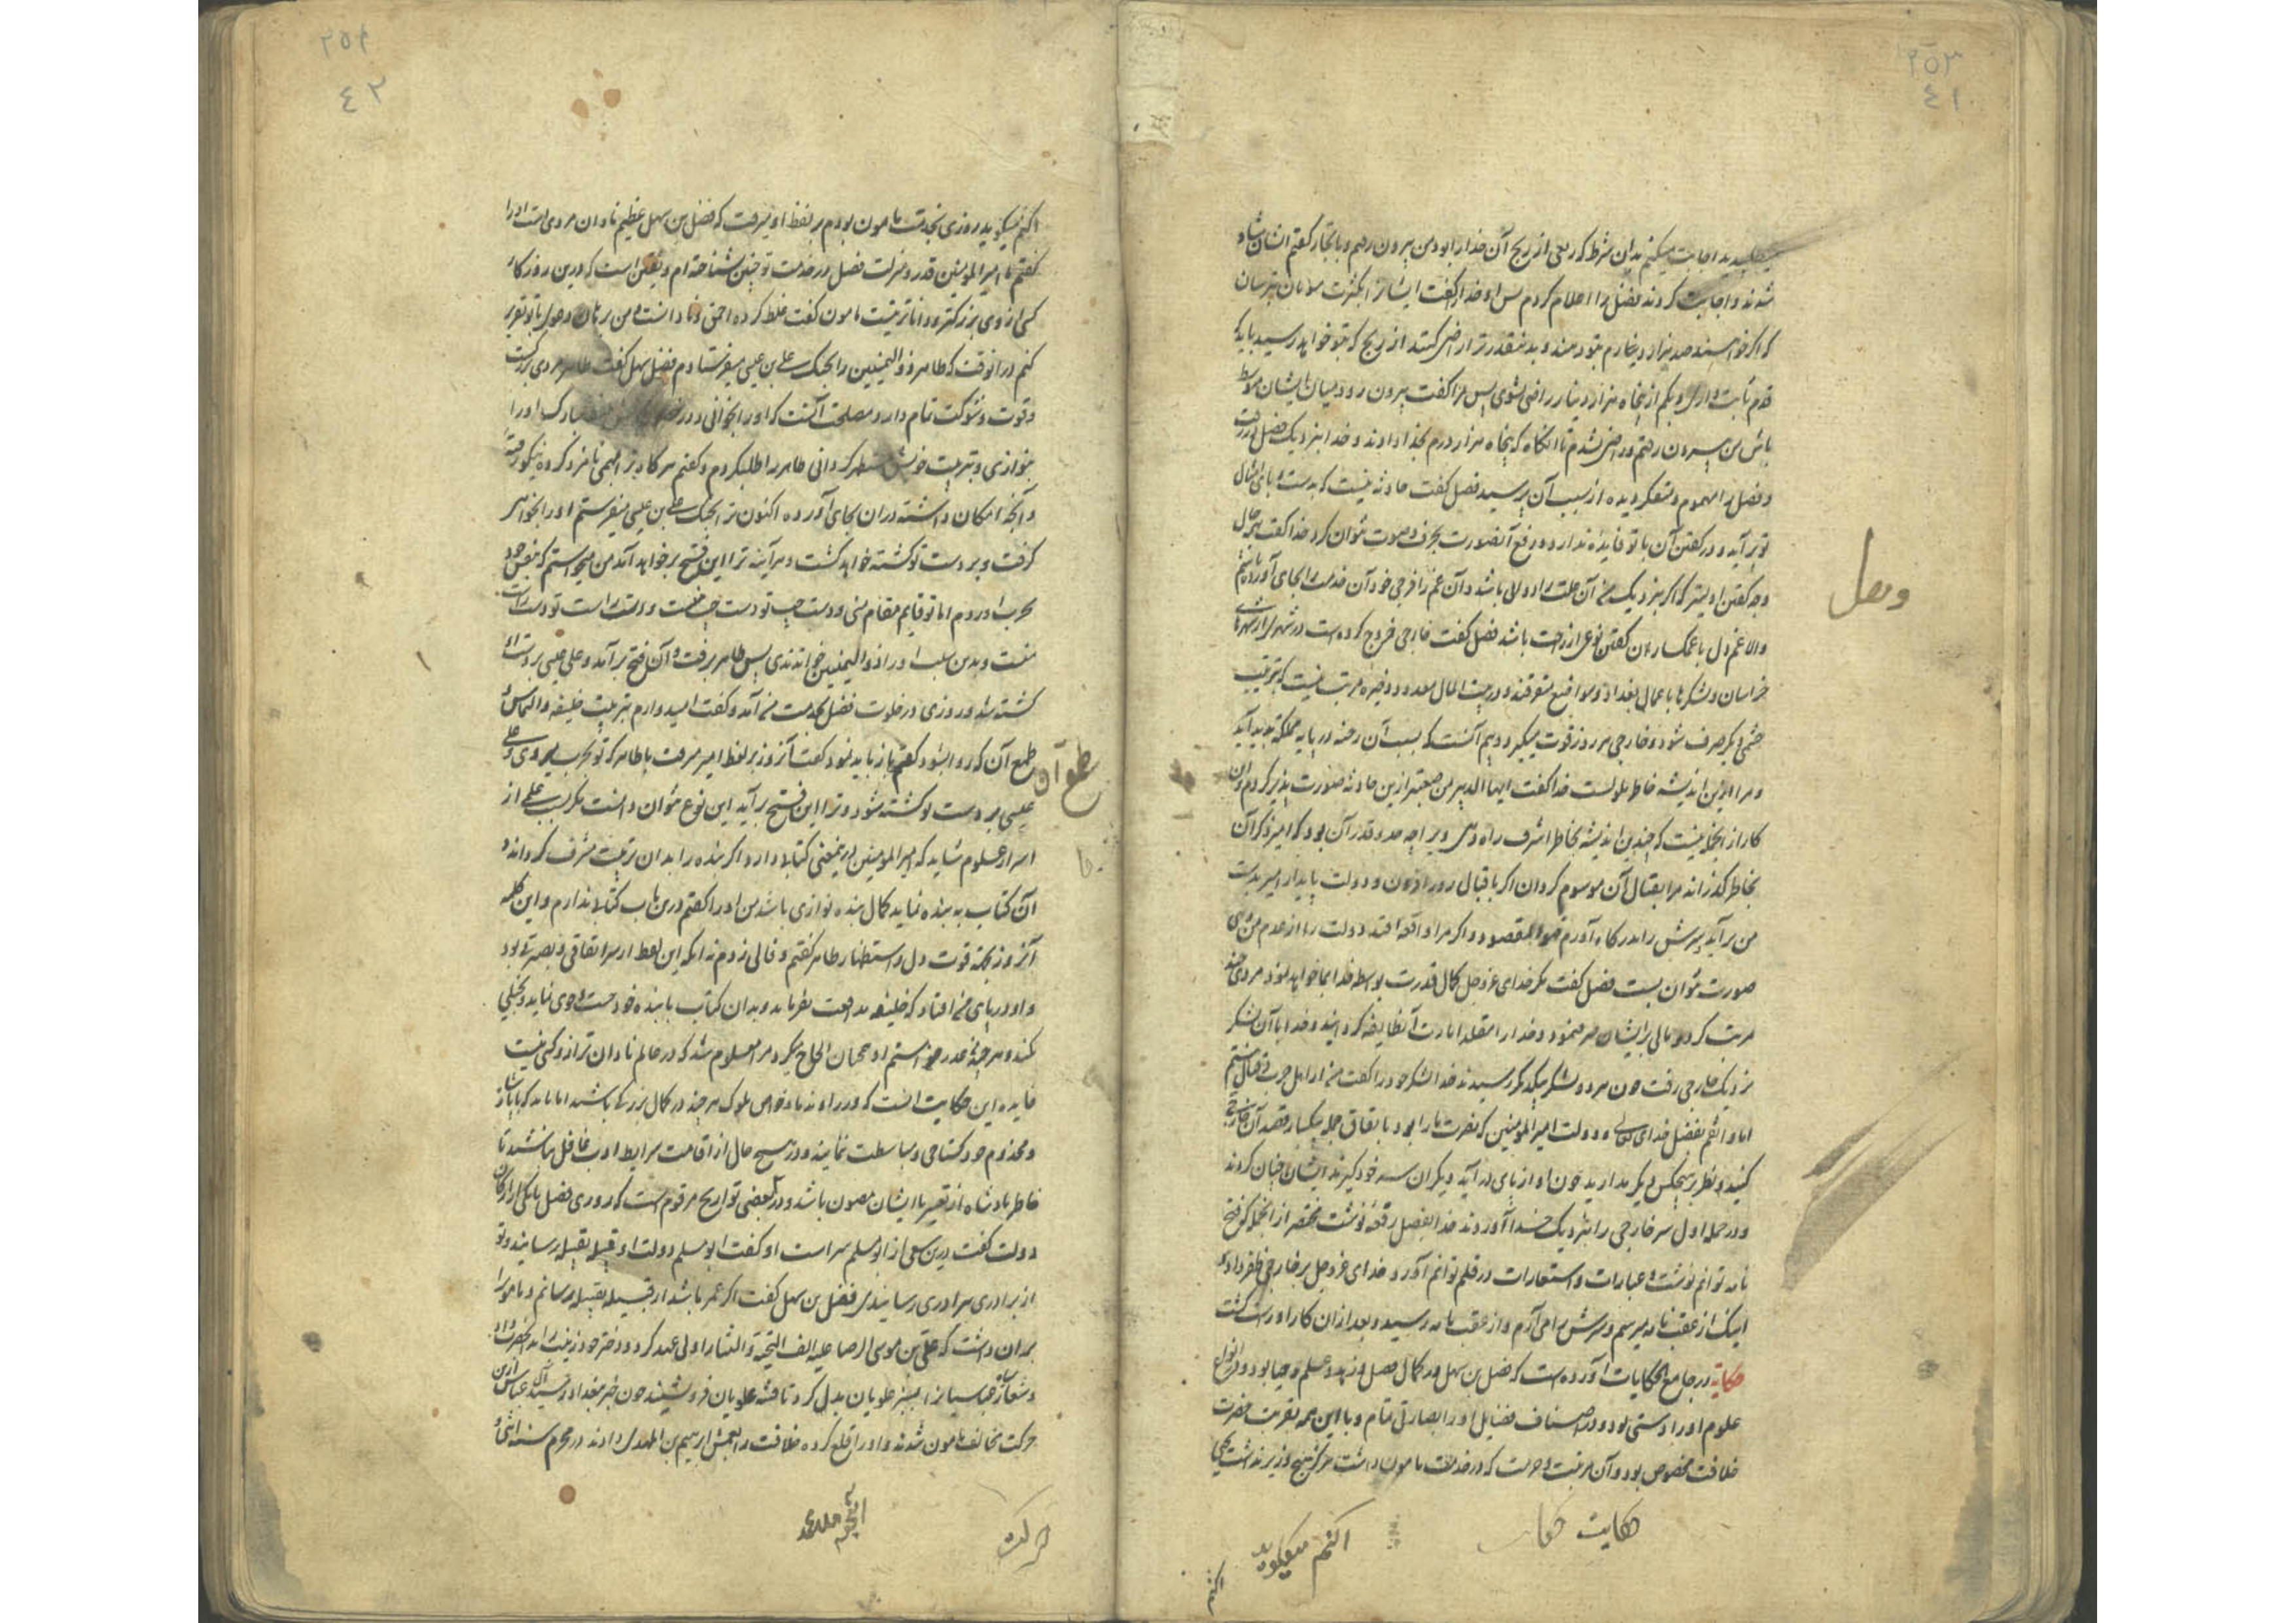 ٢٥٣
٤١
میطلبید اجابت میکنم بدان شرط که ربعی از ربح آن خدا را بود من بیرون رفتم و با تجار گفتم ایشان شاد
شدند و اجابت کردند فضل را اعلام کردم پس او خدا را گفت ایشان
که اگر خواهند صد هزار دینارم بتو دهند و بدینقدر ترا راضی کنند از ربح که بتو خواهد رسید باید که
قدم ثابت داری و بکم از پنجاه هزار دینار راضی نشوی پس مرا گفت بیرون رو و میان ایشان متوسط
باش من بیرون رفتم و راضی شدم تا آنگاه که پنجاه هزار درم بخدا دادند و خدا بنزدیک فضل در رفت
و فضل را مهموم و متفکر دیده از سبب آن پرسید فضل گفت حادثه نیست که بدست و پای امثال
تو برآید و در گفتن آن با تو فایده ندارد و رفع آنصورت بحرف و صوت نتوان کرد خدا گفت بهرحال
وجه گفتن اولیتر که اگر بنزدیک من آن علت را دوائی باشد و آن غم را فرجی خود آن خدمت را بجای آورده باشم
والا غم دل با غمگساران گفتن نوعی از راحت باشد فضل گفت خارجی خروج کرده است در شهری از شهرهای
خراسان و لشکرها با عمال بغداد و مواضع متفرقند و در بیت المال معدود و ذخیره مرتب نیست که بترتیب
حشمی دیگر صرف شود و خارجی هر روز قوت میگیرد و بیم آنست که بسبب آن رخنه در پایه مملکت پدید آید
و مرا ازین اندیشه خاطر ملولست خدا گفت ایها الدبیر من صعبتر ازین حادثه صورت پذیر کردم و این
کار از آنجمله نیست که چندین اندیشه بخاطر اشرف راه دهی و برا چه حد و قدر آن بود که امیر ذکر آن
بخاطر گذراند مرا بقتال آن موسوم گردان اگر باقبال روزافزون و دولت پایدار امیر بدست
من برآید سرش را بدرگاه آورم فهو المقصود و اگر مرا واقعه افتد دولت را از عدم من وهنی
صورت نتوان بست فضل گفت مگر خدای عز و جل کمال قدرت بواسطه خدا بما خواهد نمود مردی چند
مرتب کرد و مالی برایشان صرف نمود و خدا را متقلد امارت آنطایفه گردانید و خدا با آن لشکر
نزدیک خارجی رفت چون هر دو لشکر بیکدیگر رسیدند خدا لشکر خود را گفت من از اهل حرب و قتال نیستم
اما واثقم بفضل خدای تعالی و دولت امیرالمومنین که نصرت ما را بود باتفاق جمله بیکبار قصد آن خارجی
کنید و نظر بهیچکس دیگر مدارید چون او از پای درآید دیگران سر خود گیرند ایشان چنان کردند
و در حمله اول سر خارجی را بنزدیک خدا آوردند خدا بفضل رقعه نوشت مختصر از آنجمله که فتح
نامه توانم نوشت و عبارات و استعارات در قلم توانم آورد خدای عز و جل بر خارجی ظفر داد و
اینک از عقب نامه میرسم و سرش را می‌آرم و از عقب نامه رسید و بعد از آن کار او راست گشت
حکایة در جامع الحکایات آورده است که فضل بن سهل در کمال فضل و زهد و علم و حیا بود و در انواع
علوم او را دستی بود و در اصناف فضایل او را بصارتی تمام و با این همه بقربت حضرت
خلافت مخصوص بود و آن مرتبت و حرمت که در خدمت مامون داشت هرگز هیچ وزیر نداشت یحیی
وصل
حکایت
اکثم میگوید
اکثم
٢٥٤
٤٢
اکثم میگوید روزی بخدمت مامون بودم بر لفظ او میرفت که فضل بن سهل عظیم نادان مردی است او را
گفتم یا امیرالمومنین قدر و منزلت فضل در خدمت تو چنین شناخته‌ام و یقین است که درین روزگار
کسی از وی بزرگتر و داناتر نیست مامون گفت غلط کرده احمق و نادانست و من برهان و صول با تو تقریر
کنم در آنوقت که طاهر ذوالیمینین را بجنگ علی بن عیسی میفرستادم فضل سهل گفت طاهر مردی بزرگست
و قوت و شوکت تمام دارد مصلحت آنست که او را بخوانی و در
بنوازی و بتربیت خویش مستظهر گردانی طاهر را طلب کردم و گفتم هرگاه ترا بمهمی نامزد کرده نیکو رفته
و آنچه امکان داشته در آن بجای آورده اکنون ترا بجنگ علی بن عیسی میفرستم او را بخواهی
گرفت و بر دست تو کشته خواهد گشت و هرآینه ترا این فتح برخواهد آمد من میخواستم که بنفس خود
بحرب او روم اما تو قایم مقام منی و دست چپ تو دست چپ منست و دست راست تو دست راست
منست و بدین سبب او را ذوالیمینین خواندندی پس طاهر برفت و آن فتح برآمد و علی عیسی بر دست او
کشته شد و روزی در خلوت فضل بخدمت من آمد و گفت امیدوارم بتربیت خلیفه و التماس و
طمع آن که روا شود گفتم باز باید نمود گفت آنروز بر لفظ امیر میرفت با طاهر که تو بحرب میروی و علی
عیسی بر دست تو کشته شود و ترا این فتح برآید این نوع نتوان دانست مگر بسبب علمی از
اسرار علوم شاید که امیرالمومنین درینمعنی کتابی دارد اگر بنده را بدان تربیت مشرف گرداند و
آن کتاب به بنده نماید کمال بنده نوازی باشد من او را گفتم درین باب کتابی ندارم و این کلمه
آنروز بجهت قوت دل و استظهار طاهر گفتم و فالی زدم نه آنکه این لفظ از سر اتفاقی و بصیرتی بود
و او در پای من افتاد که خلیفه مدافعت نفرماید و بدان کتاب با بنده خود خست و جوی نماید و بخیلی
نکند و هرچند عذر خواستم او همچنان الحاح میکرد مرا معلوم شد که در عالم نادان‌تر از او کسی نیست
فایده این حکایت آنست که وزرا و ندما و خواص ملوک هرچند در کمال بزرگی باشند اما باید که با پادشاه
و مخدوم خود گستاخی و مباسطت ننمایند و در هیچ حال از اقامت شرایط ادب غافل نباشند تا
خاطر پادشاه از تغییر با ایشان مصون باشد و در بعضی تواریخ مرقوم است که روزی فضل با یکی از ارکان
دولت گفت درین سعی از ابو مسلم مراست او گفت ابو مسلم دولت از قبیله بقبیله رسانید و تو
از برادری به برادری رسانیدی فضل بن سهل گفت اگر عمر باشد از قبیله بقبیله برسانم و مامون را
بر آن داشت که علی بن موسی الرضا علیه الف التحیة و الثنا را ولی عهد کرد و دختر خود زینب را بدانحضرت داد
و شعار عباسیان را بسبز علویان بدل کرد تا فتنه علویان فرو نشیند چون خبر ببغداد رسید آل عباس ازین
حرکت مخالف مامون شدند و او را خلع کرده خلافت را بعمش ابرهیم بن المهدی دادند در محرم سنه اثنی و
طمع آن
حرکت